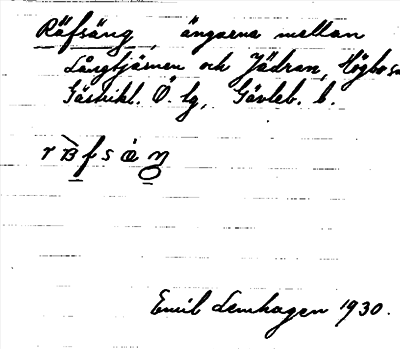 Räfsäng, ängarna mellan
Långtjärnen och Jädran, Högbo sn
Gästrikl. Ö. tg, Gävleb. l.
Emil Lenhagen 1930.